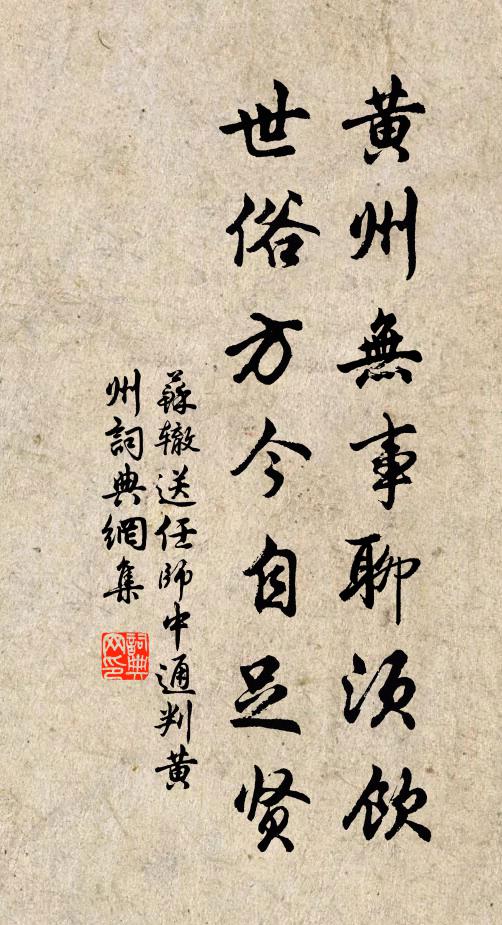 黄州無事聊須飲
世俗方今自足贤
蘇辙送任師中通判黄
州詞典網集
詞典网印